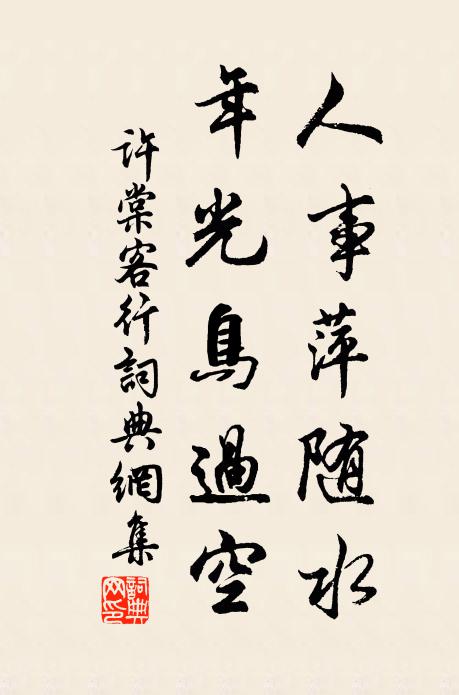 人事萍随水
年光鳥過空
許棠客行詞典網集
詞典網印